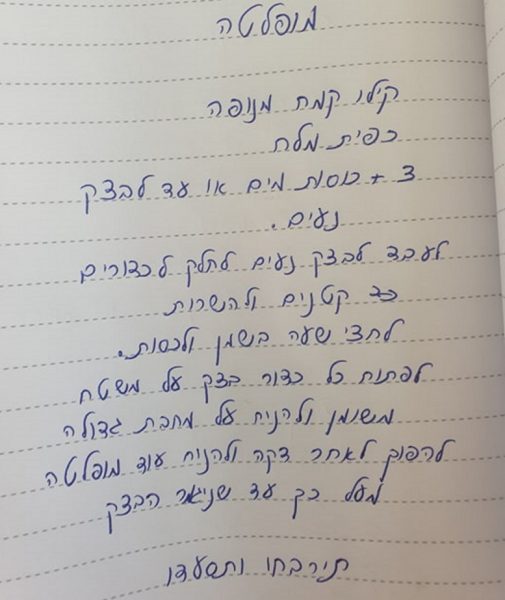 מופלטה
קילו קמח מנופה
כפית מלח
3 + כוסות מים או עד לבצק
נעים.
לעבד לבצק נעים לחלק לכדורים
קטנים ולהשרות
לחצי שעה בשמן ולכסות.
לפתוח כל כדור בצק על משטח
משומן ולהניח על מחבת גדולה
להפוך לאחר דקה ולהניח עוד מופלטה
מעל כך עד שניגמר הבצק
תירבחו ותסעדו